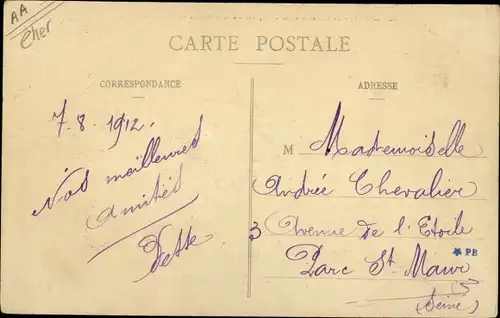 AA
Cher
CARTE POSTALE
CORRESPONDANCE
7. 8. 1912.
Nos meilleures
amitiés
ADRESSE
M Mademoiselle
Andrée Chevalier
3 Avenue de l'Etoile
Parc St. Maur
PB
(Seine)